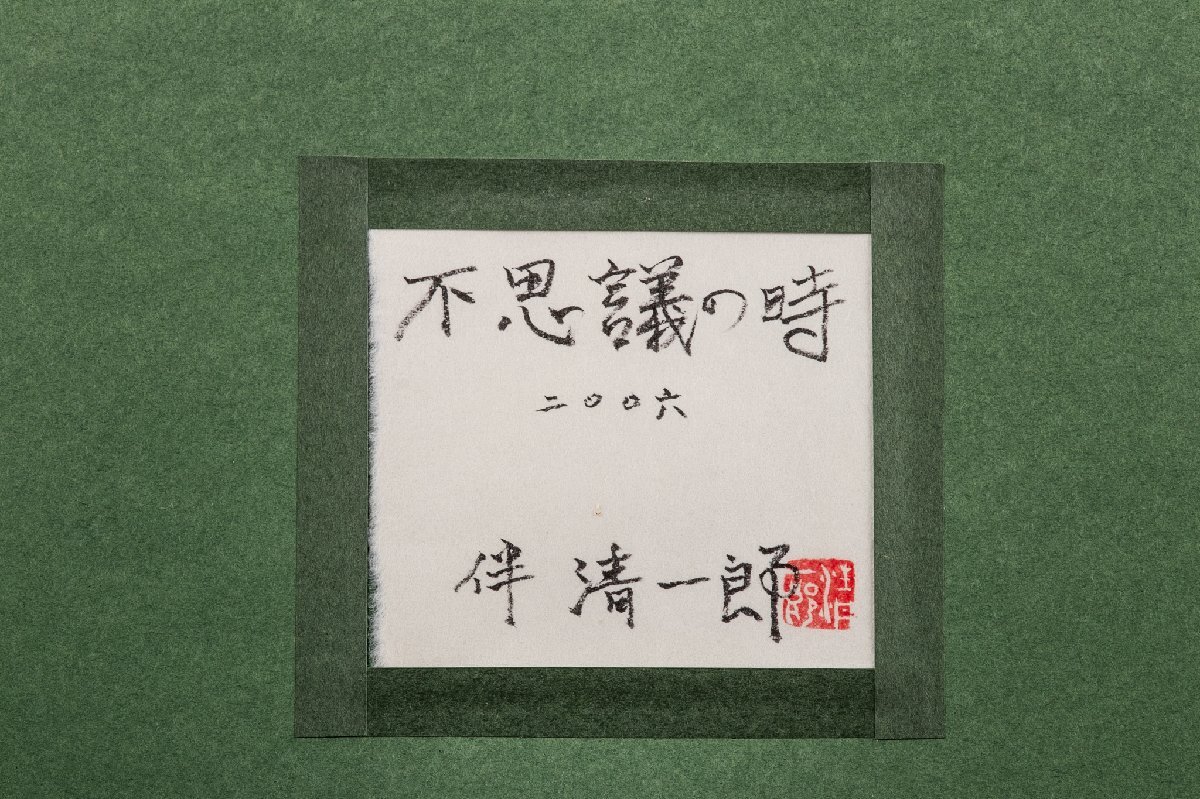 不思議の時
二〇〇六
伴清一郎